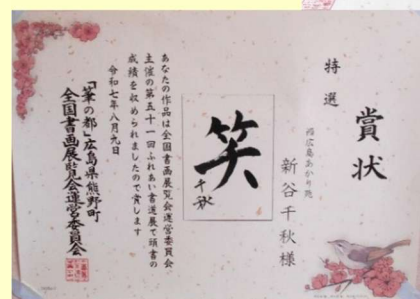 賞状
特選
福広島あかり苑
新谷千秋様
笑
千秋
あなたの作品は全国書画展覧会運営委員会
主催の第五十一回ふれあい書道展で頭書の
成績を収められましたので賞します
令和七年八月九日
「筆の都」広島県熊野町
全国書画展覧会運営委員会